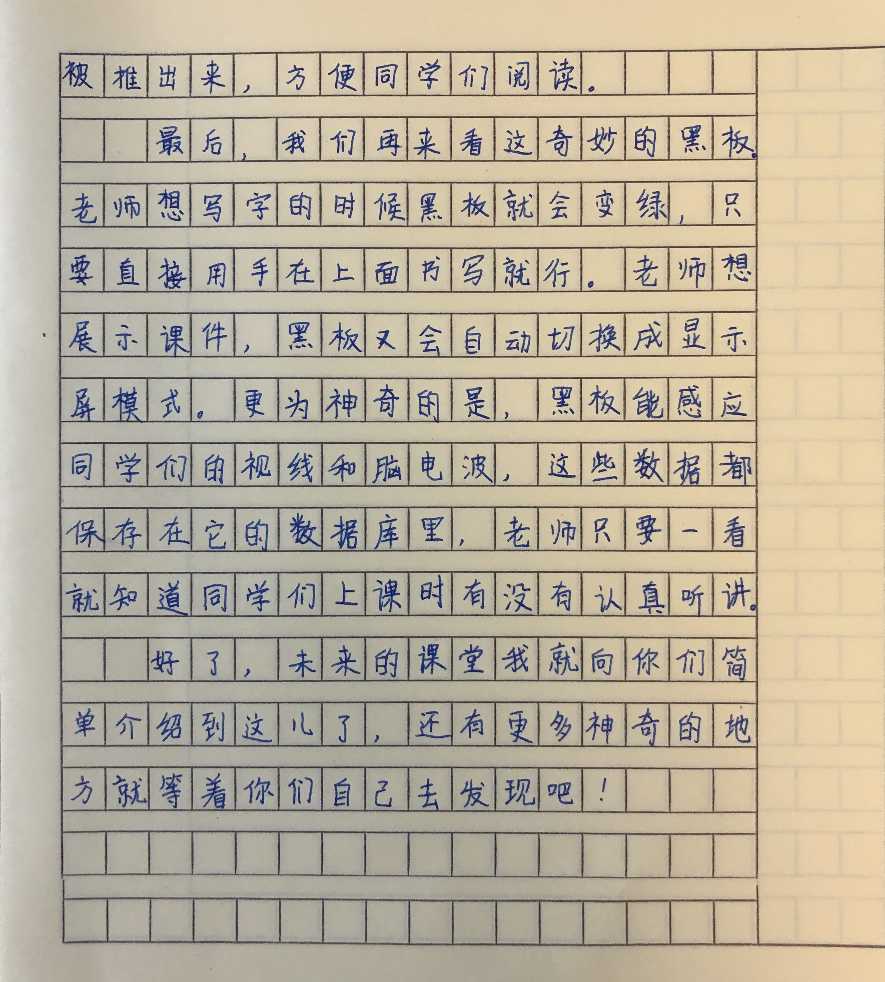 被推出来，方便同学们阅读。
最后，我们再来看这奇妙的黑板。
老师想写字的时候黑板就会变绿，只
要直接用手在上面书写就行。老师想
展示课件，黑板又会自动切换成显示
屏模式。更为神奇的是，黑板能感应
同学们的视线和脑电波，这些数据都
保存在它的数据库里，老师只要一看
就知道同学们上课时有没有认真听讲。
好了，未来的课堂我就向你们简
单介绍到这儿了，还有更多神奇的地
方就等着你们自己去发现吧！